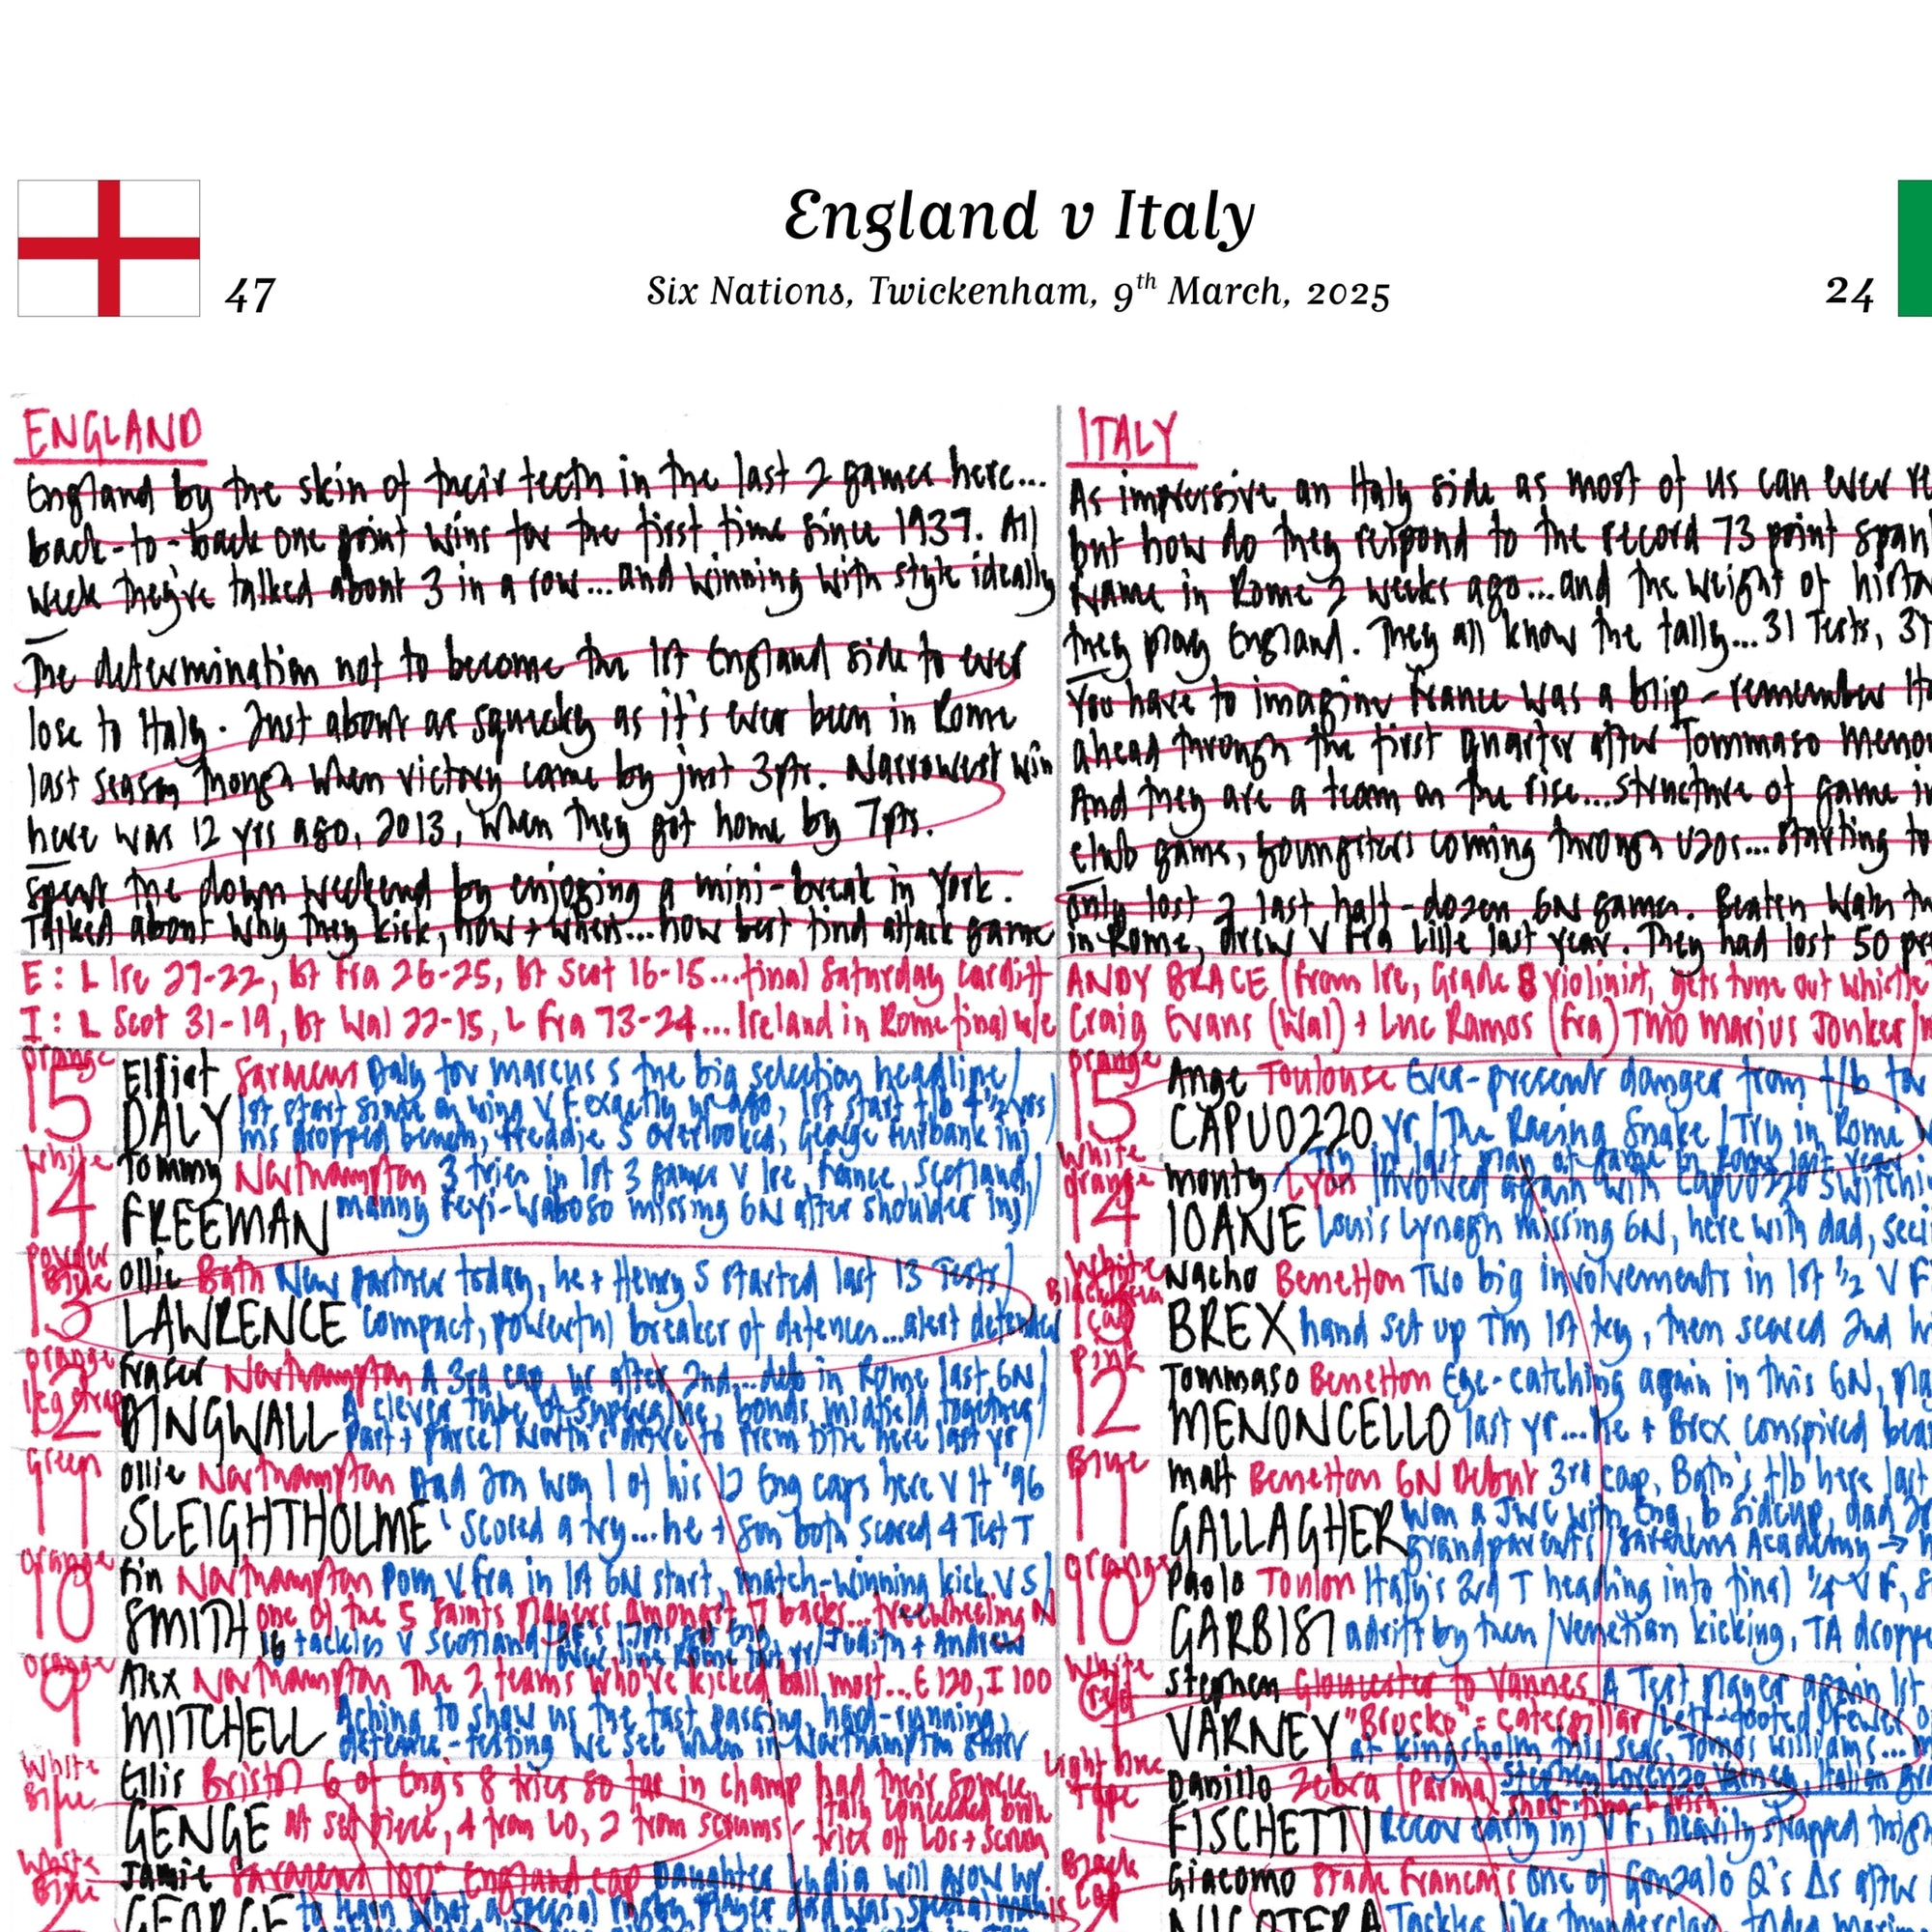 England v Italy
Six Nations, Twickenham, 9th March, 2025
47
24
ENGLAND
England by the skin of their teeth in the last 2 games here...
back-to-back one point wins for the first time since 1937. All
week they're talked about 3 in a row...and winning with style ideally
The determination not to become the 1st England side to ever
lose to Italy. Just about as squeaky as it's ever been in Rome
last season though when victory came by just 3pts. Narrowest win
here was 12 yrs ago, 2013, when they got home by 7pts.
Spent the down weekend by enjoying a mini-break in York.
Talked about why they kick, how + when...how best find attack game
E: L Ire 27-22, bt Fra 26-25, bt Scot 16-15...final Saturday Cardiff
I: L Scot 31-19, bt Wal 22-15, L Fra 73-24...Ireland in Rome final w/e
ITALY
As impressive an Italy side as most of us can ever
but how do they respond to the record 73 point
in Rome 2 weeks ago...and the weight of
they play England. They all know the tally...31 Tests,
You have to imagine France was a blip - remember
ahead through the first quarter after Tommaso
And they are a team on the rise...structure of game
club game, youngsters coming through U20s...starting to
only lost 2 last half-dozen 6N games. Beaten
in Rome, drew v Fra Lille last year. They had lost 50
ANDY BRACE (from Ire, Grade 8 violinist, gets tune out whistle
Craig Evans (Wal) + Luc Ramos (Fra) TMO Marius Jonker
orange
15 Elliot Saracens Daly for Marcus S the big selection headline/
DALY 1st start since on wing v F exactly yr ago, 1st start f/b 4 1/2 yrs
MS dropped bench, Freddie S overlooked, George Furbank inj
White
14 Tommy Northampton 3 tries in 1st 3 games v Ire, France, Scotland/
FREEMAN Manny Feyi-Waboso missing 6N after shoulder inj
Powder Blue
13 Ollie Bath New partner today, he + Henry S started last 13 Tests/
LAWRENCE compact, powerful breaker of defences...alert defender
orange leg strap
12 Fraser Northampton A 3rd cap, yr after 2nd...deb in Rome last 6N
DINGWALL A clever tube of superglue, bonds midfield together/
Part + parcel North's drive to Prem title here last yr
Green
11 Ollie Northampton Dad Jon won 1 of his 12 Eng caps here v It '96
SLEIGHTHOLME scored a try...he + son both scored 4 Test T
Orange
10 Fin Northampton POM v Fra in 1st 6N start, match-winning kick v S/
SMITH one of the 5 Saints players amongst 7 backs...freewheeling
16 tackles v Scotland / Judith + Andrew
orange
9 Alex Northampton The 2 teams who've kicked ball most...E 120, I 100
MITCHELL Aching to show us the fast passing, hard-running,
defence-testing we see when in Northampton shirt
White Blue
1 Ellis Bristol 6 of Eng's 8 tries so far in champ had their source
GENGE at set piece, 4 from LO, 2 from scrums - Italy conceded both
tries off LOs + scrum
White Blue
2 Jamie Saracens 100th England cap Daughter will grow up
GEORGE to learn what a special rugby player dad was
orange
15 Ange Toulouse Ever-present danger from f/b
CAPUOZZO yr / The Racing Snake / Try in Rome
White orange
14 Monty Lyon Involved again with Capuozzo
IOANE Louis Lynagh missing 6N, here with dad,
White
13 Nacho Benetton Two big involvements in 1st 1/2 v
BREX hand set up TM 1st try, then scored 2nd
Pink
12 Tommaso Benetton Eye-catching again in this 6N,
MENONCELLO last yr...he + Brex conspired
Blue
11 Matt Benetton 6N Debut 3rd cap, Bath's f/b here last
GALLAGHER Won a JWC with Eng, b Sidcup, dad
grandparents / Saracens Academy →
Orange
10 Paolo Toulon Italy's 3rd T heading into final 1/4 v F,
GARBISI adrift by then / Venetian kicking, TA
White
9 Stephen Gloucester to Vannes A Test player again 1st
VARNEY "Bruco" = caterpillar / Left-footed
at Kingsholm this seas, Tomos Williams...
Light blue Tape
1 Danilo Zebra (Parma)
FISCHETTI Recov early inj v F, heavily strapped
Black Cap
Giacomo Stade Francais one of Gonzalo Q's Δs after
NICOTERA Tackles like thunderclap,